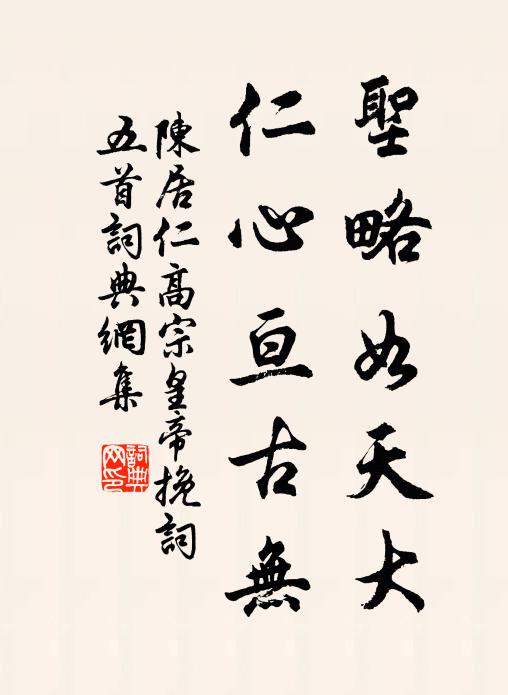 聖略如天大
仁心亘古無
陳居仁高宗皇帝挽詞
五首詞典網集
詞典網印